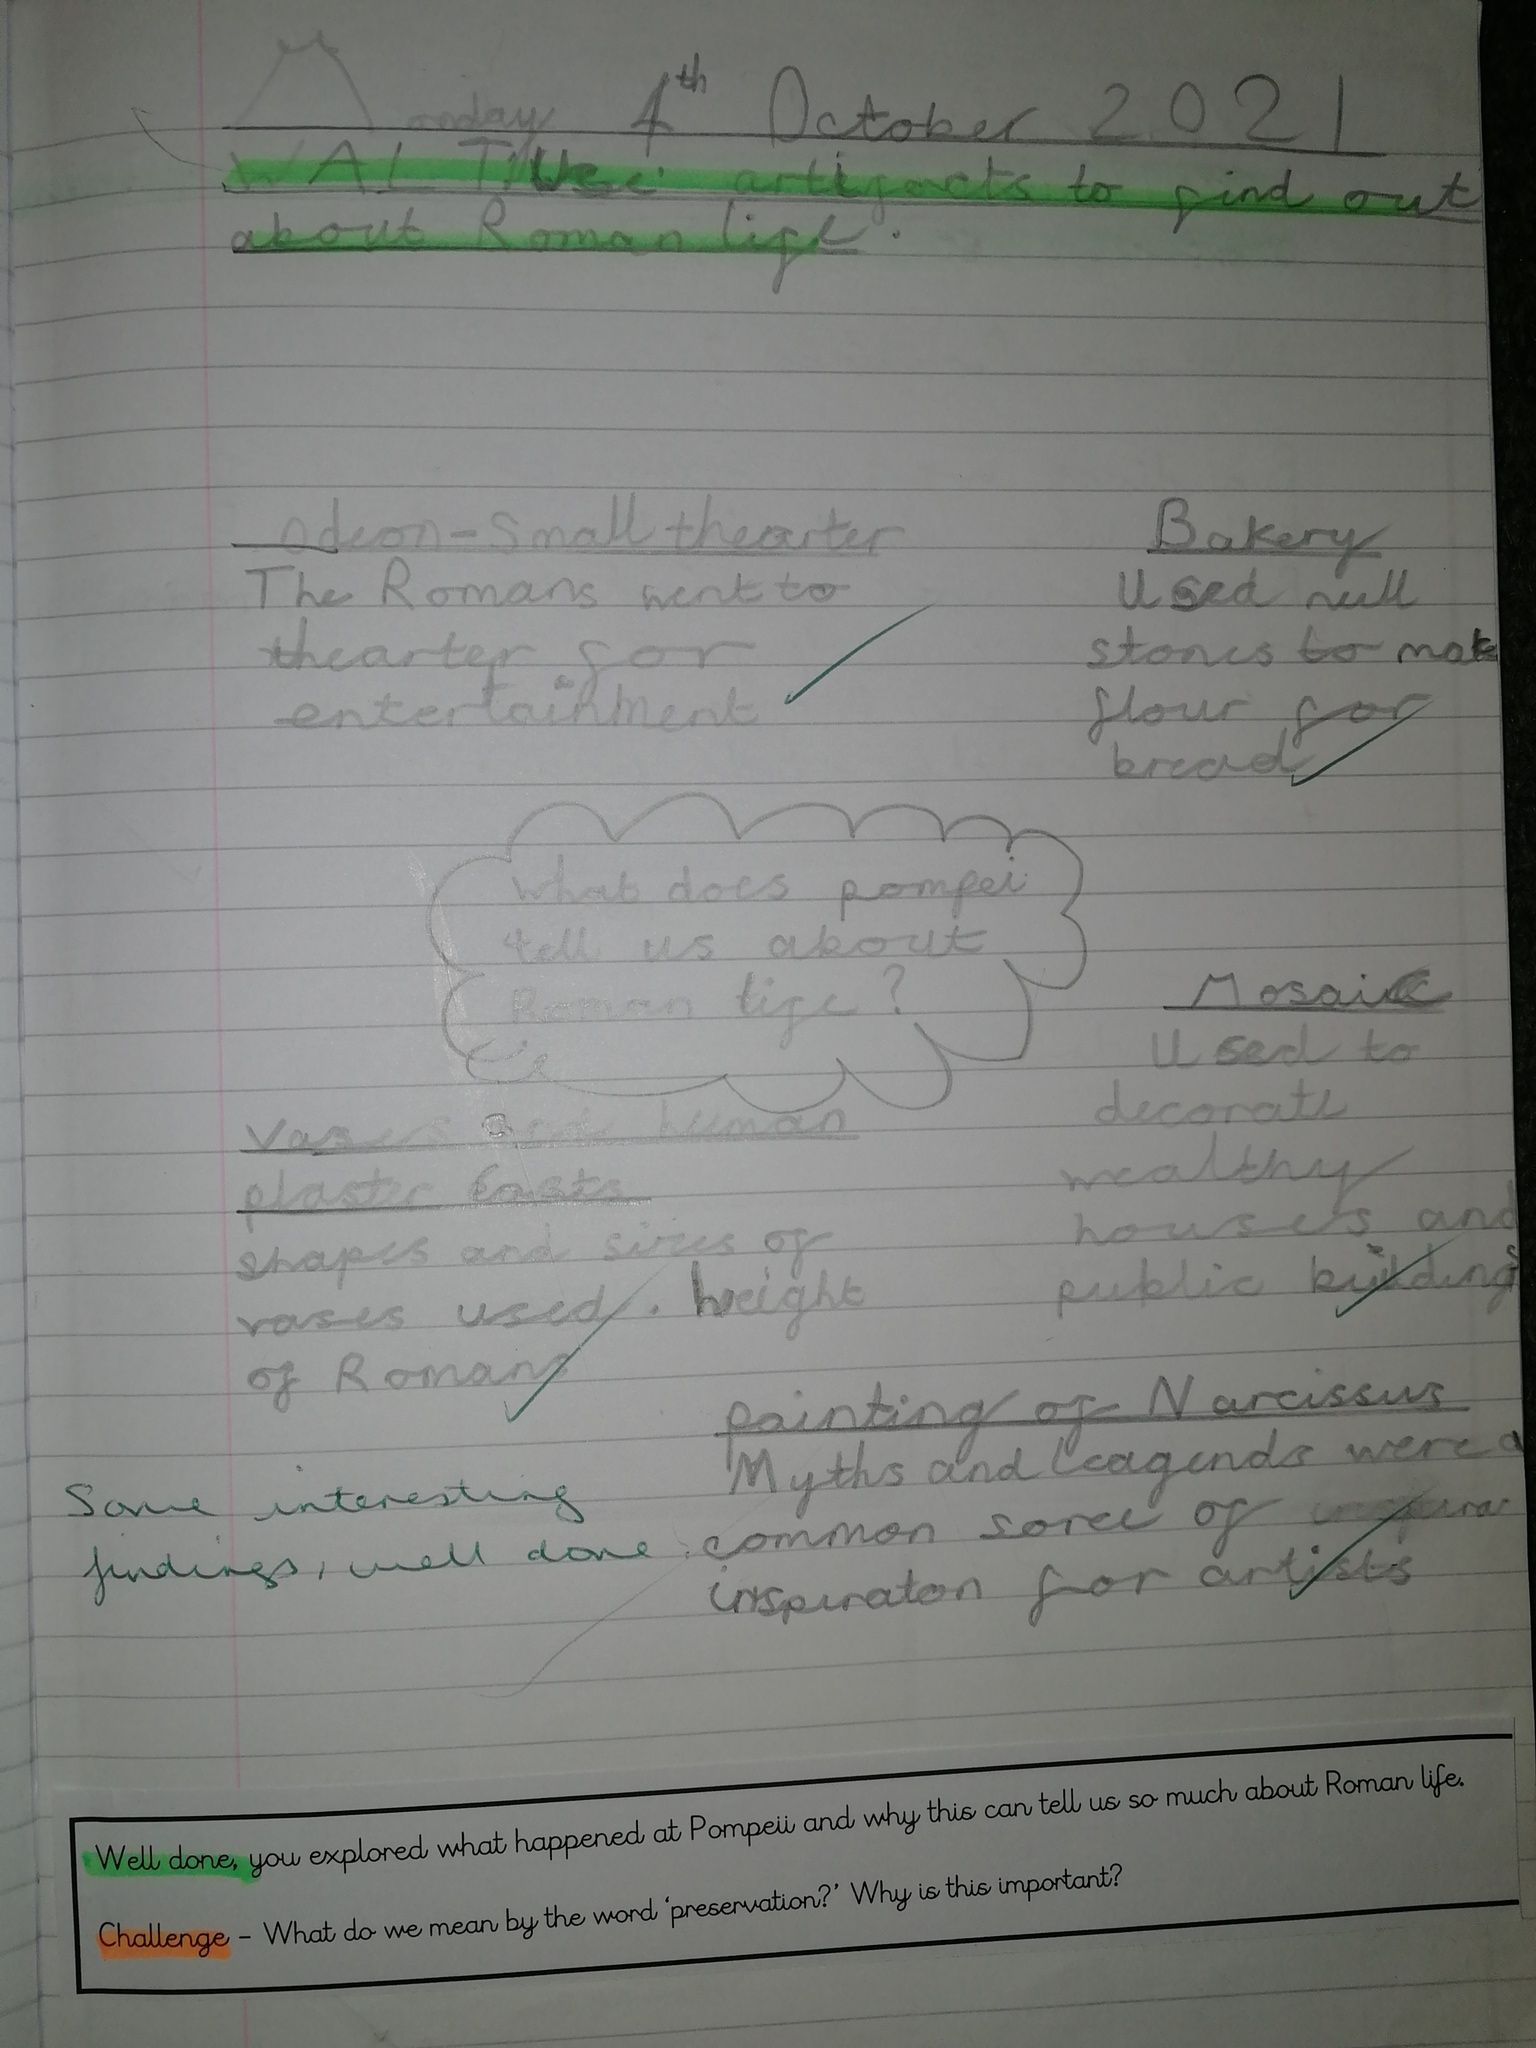 Monday 4th October 2021
WALT: Use artifacts to find out
about Roman life.
Odeon - Small thearter
The Romans went to
thearter for
entertainment
Bakery
Used mill
stones to make
flour for
bread
What does pompei
tell us about
Roman life?
Mosaic
Used to
decorate
wealthy
houses and
public buildings
vases and human
plaster casts
shapes and sizes of
vases used. height
of Romans
painting of Narcissus
Myths and leagends were a
common sorce of
inspiraton for artists
Some interesting
findings, well done.
Well done, you explored what happened at Pompeii and why this can tell us so much about Roman life.
Challenge - What do we mean by the word 'preservation?' Why is this important?